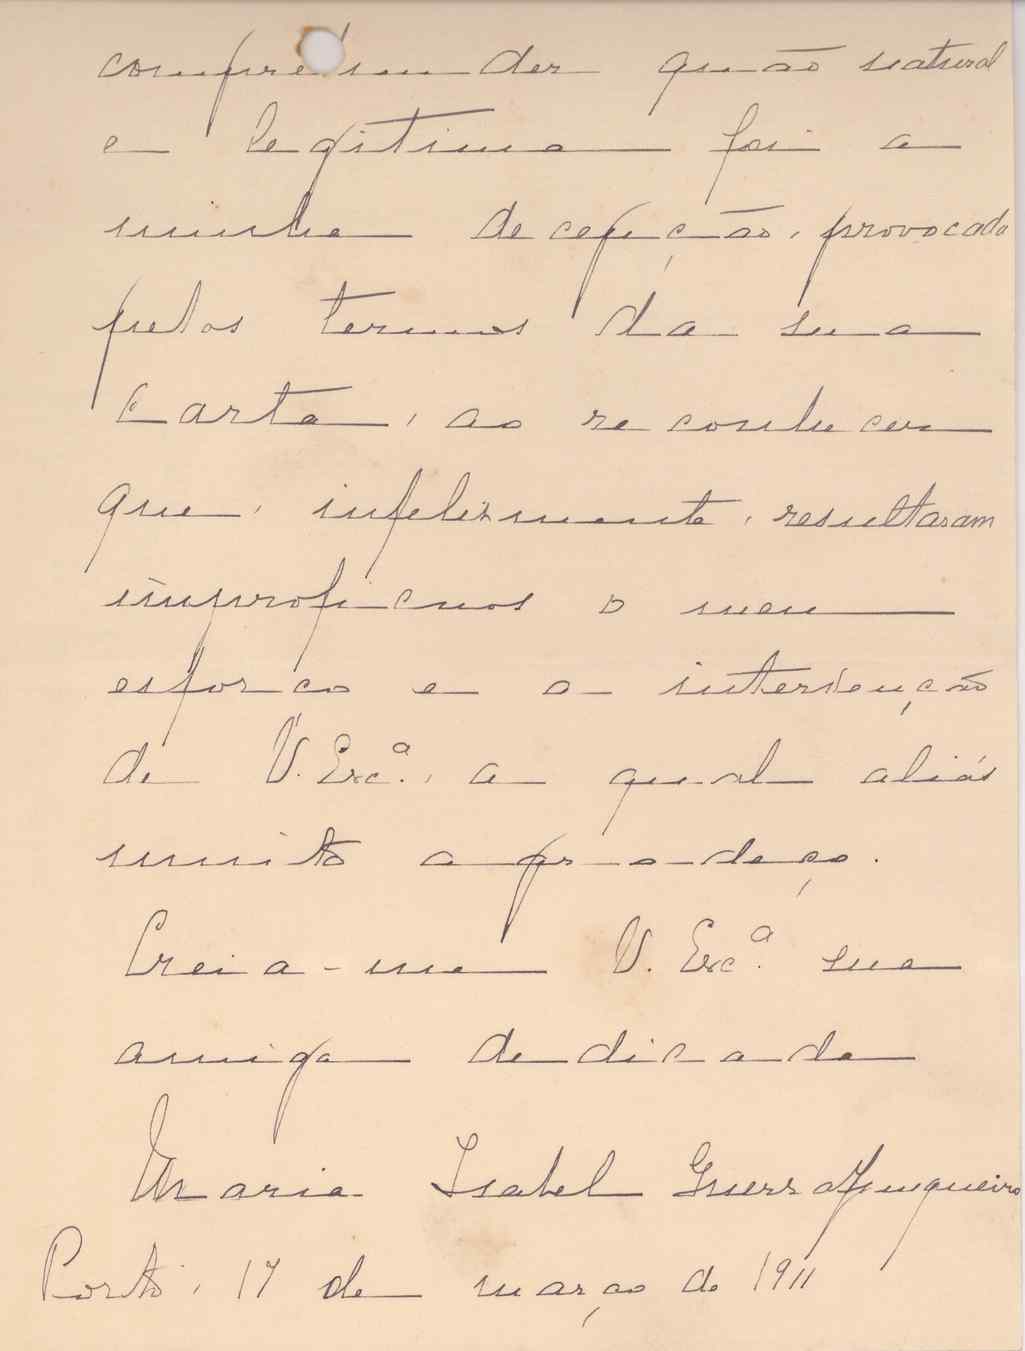 compreender quão natural
e legitima foi a
minha decepção, provocada
pelos termos da sua
Carta, ao reconhecer
que, infelizmente, resultaram
improficuos o meu
esforço e a intervenção
de V. Exc.ª, a qual aliás
muito agradeço.
Creia-me V. Exc.ª sua
amiga dedicada
Maria Isabel Guerra Junqueiro
Porto, 17 de março de 1911